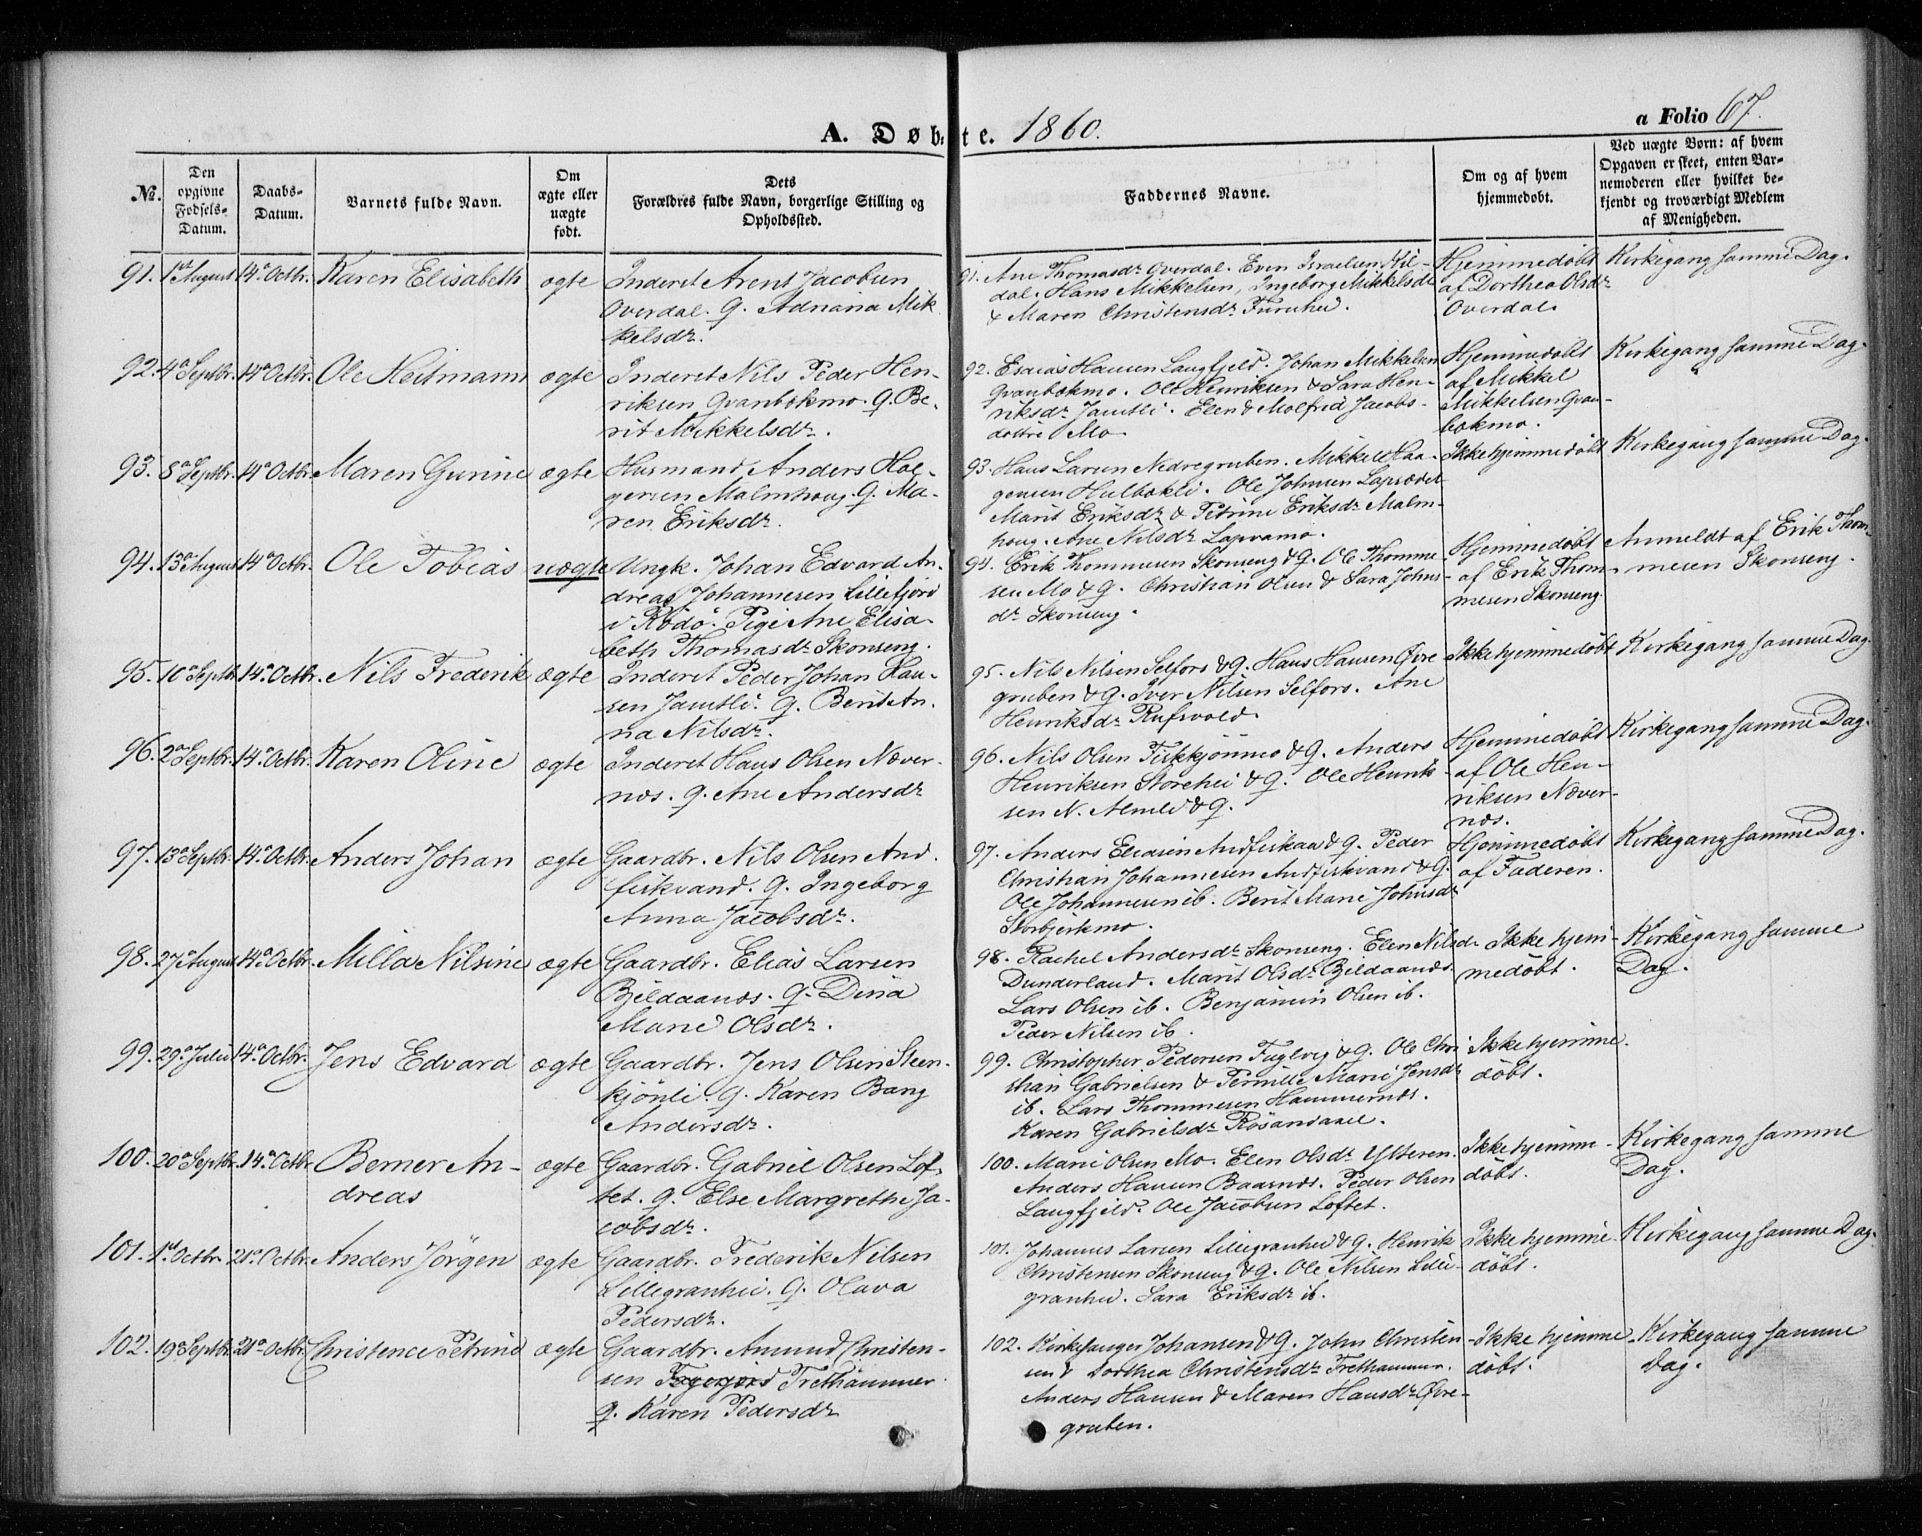 A. Døbte. 1860.
a Folio 67.
№.
Den opgivne Fødsels-Datum.
Daabs-Datum.
Barnets fulde Navn.
Om ægte eller uægte født.
Dets Forældres fulde Navn, borgerlige Stilling og Opholdssted.
Faddernes Navne.
Om og af hvem hjemmedøbt.
Ved uægte Børn: af hvem Opgaven er skeet, enten Barnemoderen eller hvilket bekjendt og troværdigt Medlem af Menigheden.
91. 1st August 14de Octbr. Karen Elisabeth ægte
Inderst Arent Jacobsen
Overdal. G. Adriana Mik-
kelsdr.
91. Ane Thomasdr Overdal. Even Israelsen Hil-
dal. Hans Mikkelsen, Ingeborg Mikkelsdr
& Maren Christensdr Furuhei.
Hjemmedøbt
af Dorthea Olsdr
Overdal.
Kirkegang samme Dag.
92. 4de Septbr. 14de Octbr. Ole Heitmann ægte
Inderst Nils Peder Hen-
riksen Granbokmo. G. Be-
rit Mikkelsdr.
92. Esaias Hansen Langfjeld. Johan Mikkelsen
Granbokmo. Ole Henriksen & Sara Hen-
riksdr Jamtli. Elen & Molfrid Jacobs-
dottre Mo
Hjemmedøbt
af Mikkel
Mikkelsen Gran-
bokmo.
Kirkegang samme Dag.
93. 8de Septbr. 14de Octbr. Maren Gurine ægte
Husmand Anders Hol-
gersen Malmhoug. G. Ma-
ren Eriksdr.
93. Hans Larsen Nedregruben. Mikkel Haa-
gensen Hulbokli. Ole Johnsen
Marit Eriksdr & Petrine Eriksdr Malm-
houg. Ane Nilsdr Lapvamo.
Ikke hjemmedøbt
Kirkegang samme Dag.
94. 13de August 14de Octbr. Ole Tobias uægte
Ungk. Johan Edvard An-
dreas Johannesen Lillefjord
i Rödö. Pige Ane Elisa-
beth Thomasdr Skonseng.
94. Erik Thommesen Skonseng & G. Ole Thomme-
sen Mo & G. Christian Olsen & Sara Johns-
dr Skonseng.
Hjemmedøbt
af Erik Thom-
mesen Skonseng.
Anmeldt af Erik Thom-
mesen Skonseng.
95. 10de Septbr. 14de Octbr. Nils Frederik ægte
Inderst Peder Johan Han-
sen Jamtli. G. Berit An-
na Nilsdr.
95. Nils Nilsen Selfors & G. Hans Hansen Øvre
gruben & G. Iver Nilsen Selfors. Ane
Henriksdr Rufsvold.
Ikke hjemmedöbt
Kirkegang samme Dag.
96. 2de Septbr. 14de Octbr. Karen Oline ægte
Inderst Hans Olsen Næver-
næs. G. Ane Andersdr
96. Nils Olsen Fiskkjønmo & G. Anders
Henriksen Storehei & G. Ole Henrik-
sen N. Almli & G.
Hjemmedøbt
af Ole Hen-
riksen Næver-
næs.
Kirkegang samme Dag.
97. 13de Septbr. 14de Octbr. Anders Johan ægte
Gaardbr. Nils Olsen And-
fiskvand. G. Ingeborg
Anna Jacobsdr.
97. Anders Eliasen Andfiskaa & G. Peder
Christian Johannesen Andfiskvand & G.
Ole Johannesen ib. Berit Marie Johnsdr
Storbjerkmo.
Hjemmedöbt
af Faderen.
Kirkegang samme Dag.
98. 27de August 14de Octbr. Milla Nilsine ægte
Gaardbr. Elias Larsen
Bjeldaanæs. G. Dina
Marie Olsdr.
98. Rachel Andersdr Skonseng. Elen Nilsdr
Dunderland. Marit Olsdr Bjeldaanæs.
Lars Olsen ib. Benjamin Olsen ib.
Peder Nilsen ib.
Ikke hjem-
medöbt.
Kirkegang samme
Dag.
99. 29de Julii 14de Octbr. Jens Edvard ægte
Gaardbr. Jens Olsen Steen-
kjönli. G. Karen Bang
Andersdr.
99. Christopher Pedersen Fuglvig & G. Ole Chri-
stian Gabrielsen & Pernille Marie Jensdr
ib. Lars Thommesen Hammernæs.
Karen Gabrielsdr Rösandaael.
Ikke hjemme-
döbt.
100. 20de Septbr. 14de Octbr. Berner An-
dreas ægte
Gaardbr. Gabriel Olsen Lof-
tet. G. Else Margrethe Ja-
cobsdr.
100. Marie Olsen Mo. Elen Olsdr Ytteren.
Anders Hansen Baasnæs. Peder Olsen
Langfjeld. Ole Jacobsen Loftet.
Ikke hjemme-
döbt.
Kirkegang samme
Dag.
101. 1st Octbr. 21de Octbr. Anders Jørgen ægte
Gaardbr. Frederik Nilsen
Lillegranhei. G. Olava
Pedersdr.
101. Johannes Larsen Lillegranhei & G. Henrik
Christensen Skonseng & G. Ole Nilsen Lille-
granhei. Sara Eriksdr ib.
Ikke hjemme-
döbt.
Kirkegang samme Dag.
102. 19de Septbr. 21de Octbr. Christence Petrine ægte
Gaardbr. Amund Christen-
sen Trethammer.
G. Karen Pedersdr
102. Kirkesanger Johansen & G. John Christen-
sen & Dorthea Christensdr Trethammer.
Anders Hansen & Maren Hansdr Øvre-
gruben.
Ikke hjemme
döbt.
Kirkegang samme
Dag.